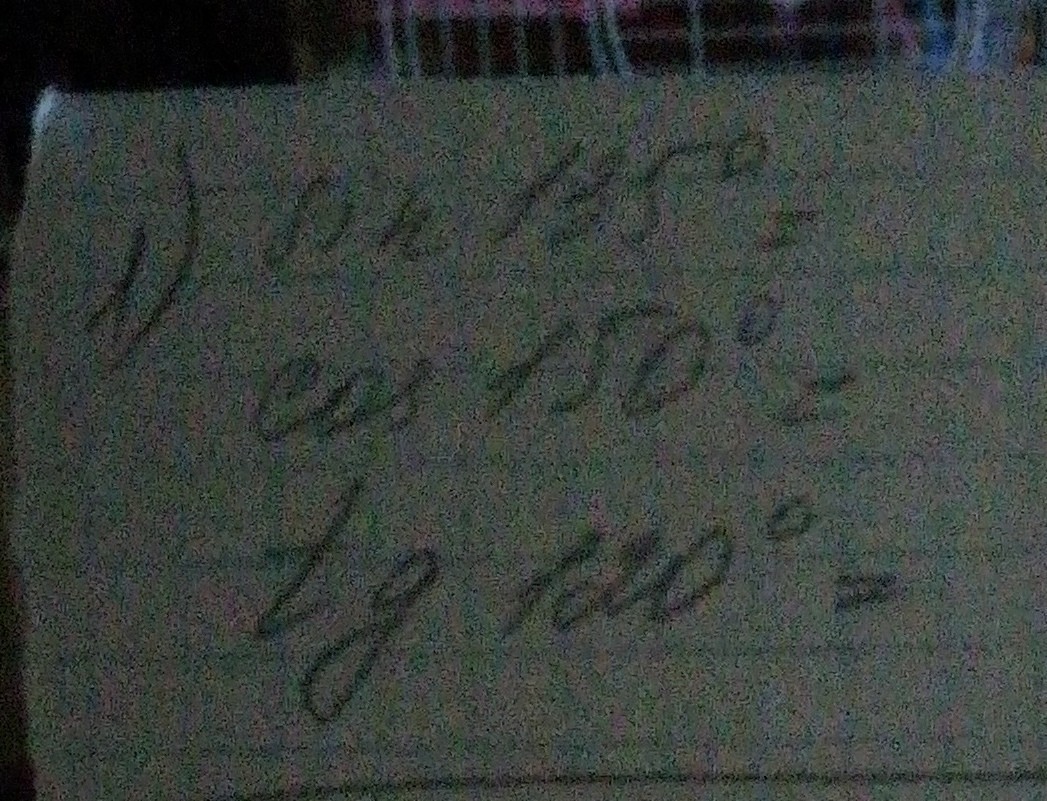 1) sin 135° =
cos 150° =
tg 120° =